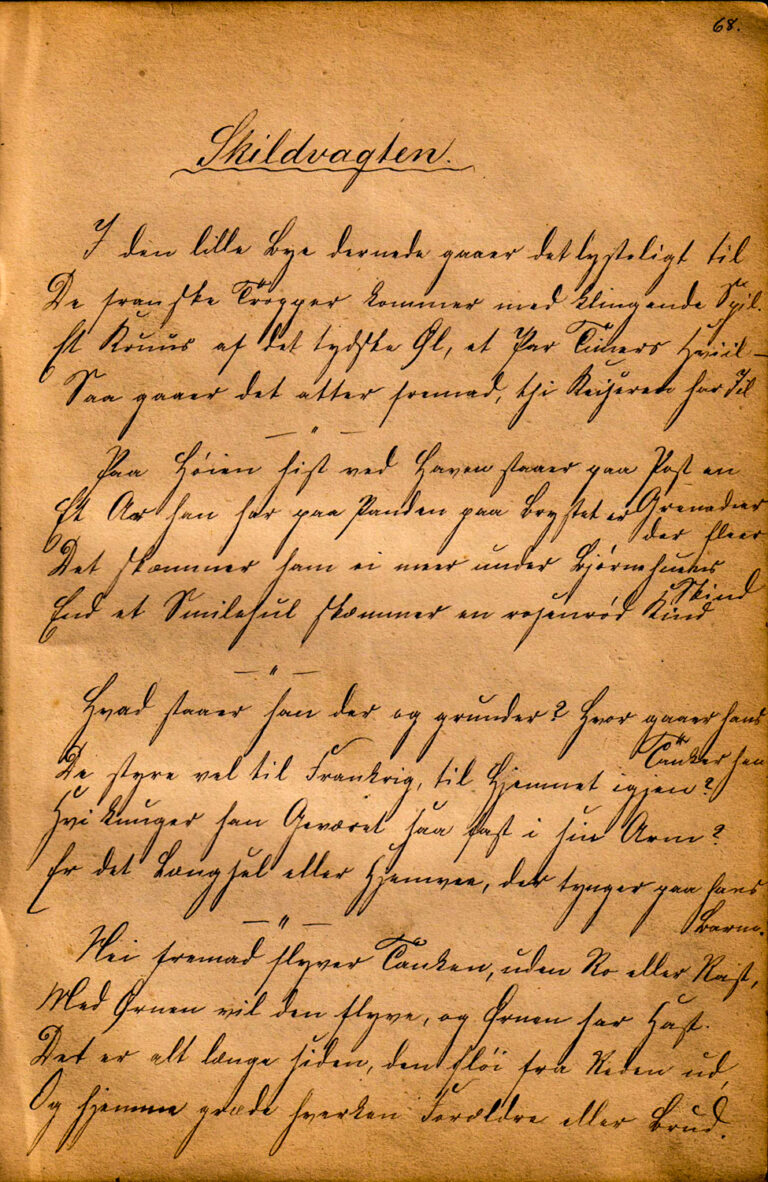 68.
Skildvagten.
I den lille Bye dernede gaaer det lysteligt til
De franske Tropper kommer med klingende Spil.
Et Kruus af det tydske Øl, et Par Timers Hviil –
Saa gaaer det atter fremad, thi Keiseren har Iil
– " –
Paa Høien hist ved Haven staaer paa Post en
Grenadeer
Et Ar han har paa Panden paa Brystet er
der fleer
Det skæmmer ham ei meer under Bjørnehuens
Skind
End et Smilehul skæmmer en rosenrød Kind
– " –
Hvad staaer han der og grunder? Hvor gaaer hans
Tanker hen
De styre vel til Frankrig, til Hjemmet igjen?
Hvi knuger han Geværet saa fast i sin Arm?
Er det Længsel eller Hjemvee, der tynger paa hans
Barm.
– " –
Nei fremad flyver Tanken, uden Ro eller Rast,
Med Ørnen vil den flyve, og Ørnen har Hast.
Det er alt længe siden, den fløi fra Reden ud,
Og hjemme græde hverken Forældre eller Brud.